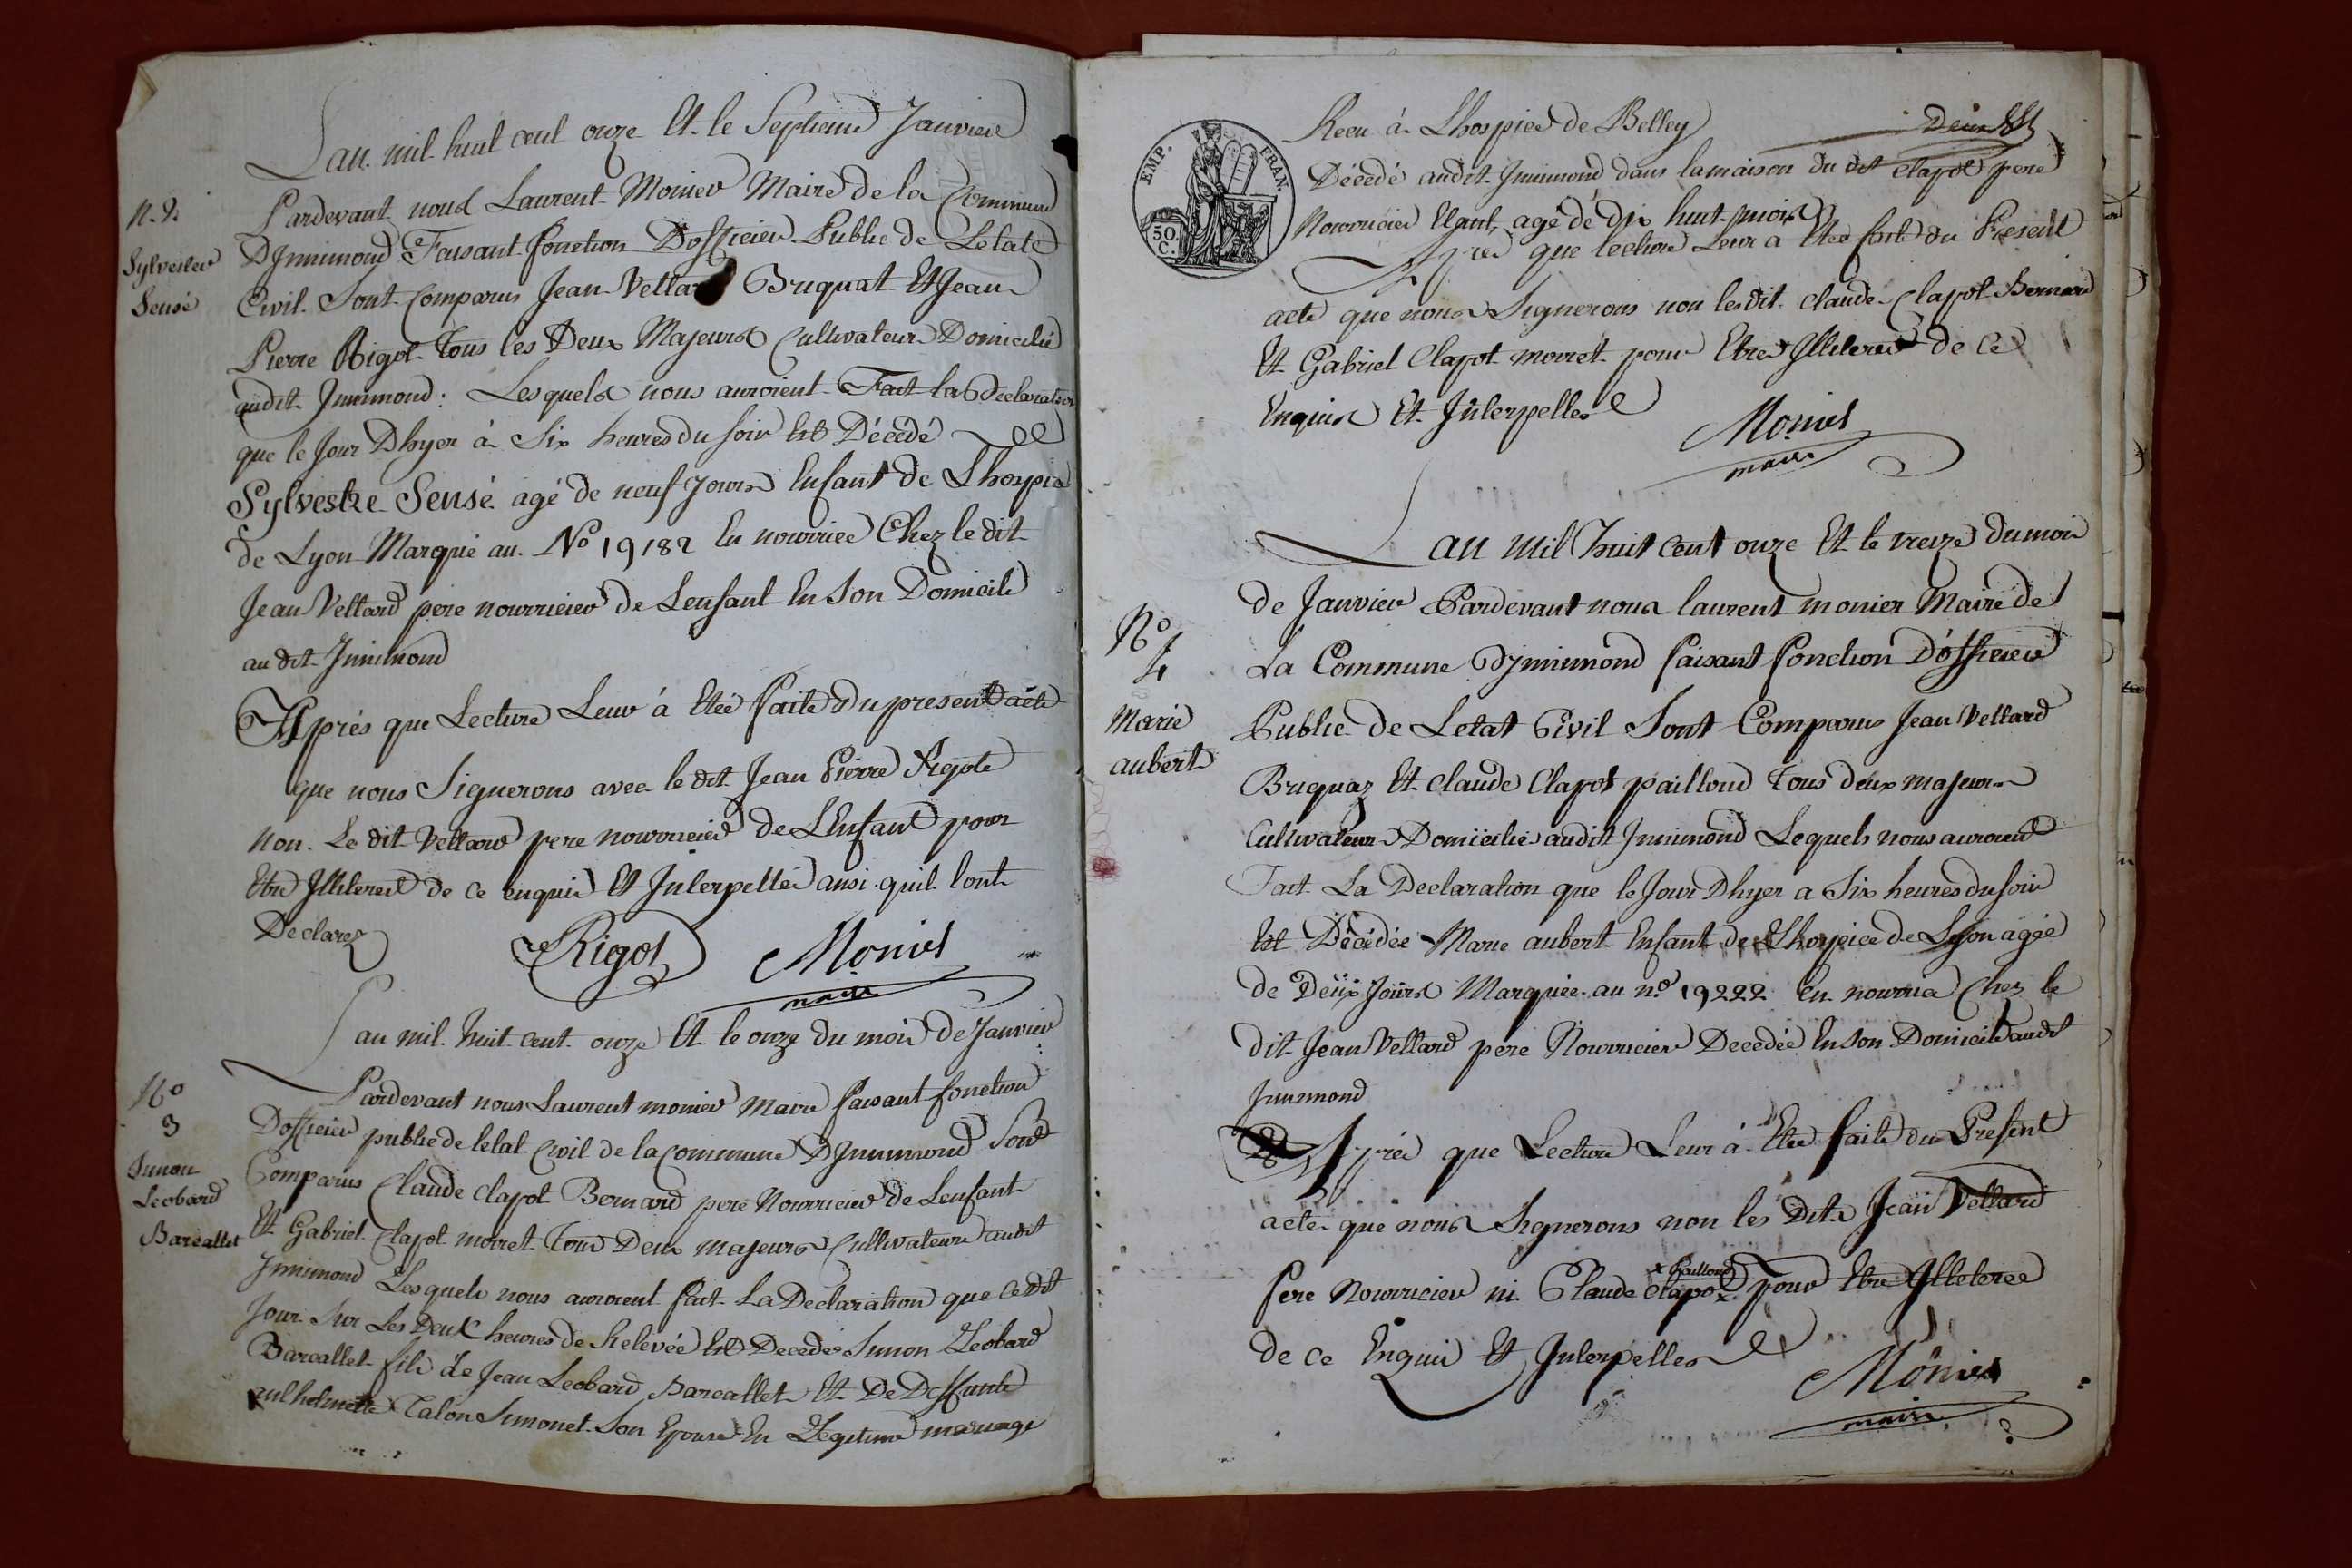 Lan mil huit cent onze Et le Septieme Janvier
N. 2
Sylvestre
Sensé
Pardevant nous Laurent Monier Maire de la Commune
D'Innimond Faisant fonction Dofficier Public de Letate
Civil Sont Comparus Jean Vettard Briquat Et Jean
Pierre Rigot Tous les Deux Majeurs Cultivateur Domicilié
audit Innimond: Lesquels nous auroient Fait la Declaration
que le Jour Dhyer à Six heures du soir Est Décédé
Sylvestre Sensé agé de neuf Jours Enfant de Lhospice
de Lyon Marqué au No 19182 En nourrice Chez le dit
Jean Vettard pere nourricier de Lenfant En Son Domicile
au dit Innimond
Après que Lecture Leur à Etée faite Du present acte
que nous Signerons avec le dit Jean Pierre Rigote
non Le dit Vettard pere nourricier de LEnfant pour
Etre Illiteret de ce enquis Et Interpellés ansi quil lont
Declarez
Rigot Monier
maire
Lan mil huit cent onze Et le onze du mois de Janvier
No
3
Simon
Leobard
Barcallet
Pardevant nous Laurent monier Maire faisant fonction
Dofficier public de letat Civil de la Commune DInnimond Sont
Comparus Claude Clapot Bernard pere Nourricier de Lenfant
Et Gabriel Clapot moiret Tous Deux majeurs Cultivateurs audit
Innimond Lesquels nous auroient fait La Declaration que Cedit
Jour Sur Les Deux heures de Relevée Est Decedé Simon Leobard
Barcallet fils de Jean Leobard Barcallet Et De Deffunte
Talon Simonet Son Epouse En Legitime mariage
Deux
EMP. FRAN.
50
C.
Recu à Lhospice de Belley
Décedé audit Innimond dans lamaison du dit Clapot pere
Nourricier Etant agé de dix huit mois
Après que lecture Leur a Etée faite du Present
acte que nous Signerons non lesdit Claude Clapot Bernard
Et Gabriel Clapot moiret pour Etre Illiteret de Ce
Enquis Et Interpelles
Monier
maire
Lan mil huit Cent onze Et le treize du mois
de Janvier Pardevant nous laurent monier Maire de
No
4
Marie
aubert
La Commune Dinnimond faisant fonction D'officier
Public de Letat Civil Sont Comparus Jean Vettard
Briquaz Et Claude Clapot paillond Tous deux majeurs
Cultivateurs Domicilié audit Innimond Lequels nous auroient
Fait La Declaration que le Jour Dhyer a Six heures du soir
Est Décédée Marie aubert Enfant de Lhospice de Lyon agée
de Deux Jours Marquée au n.o 19222 En nourrice Chez le
dit Jean Vettard pere Nourricier Decedée En son Domicile audit
Innimond
Après que Lecture Leur à Etée faite du Present
acte que nous Signerons non les Dits Jean Vettard
Pere Nourricier ni Claude Clapot x pour Etre Illiteree
x Paillond
de ce Enquis Et Interpelles
Monier
maire